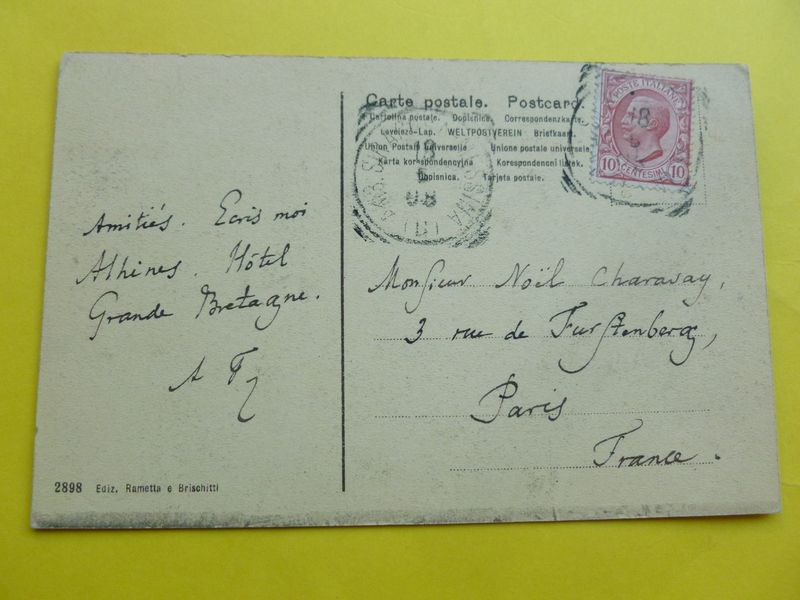 Carte postale. Postcard.
Cartolina postale. Dopisnice. Correspondenzkarte.
Levelező-Lap. WELTPOSTVEREIN Briefkaart.
Union Postale universelle Unione postale universale.
Karta korespondencyjna Korespondenční lístek.
Dopisnica. Tarjeta postale.
POSTE ITALIANE
10 CENTESIMI 10
08
Amitiés. Ecris moi
Athènes. Hôtel
Grande Bretagne.
A F
Monsieur Noël Charavay,
3 rue de Furstenberg,
Paris
France.
2898 Ediz. Rametta e Brischitti